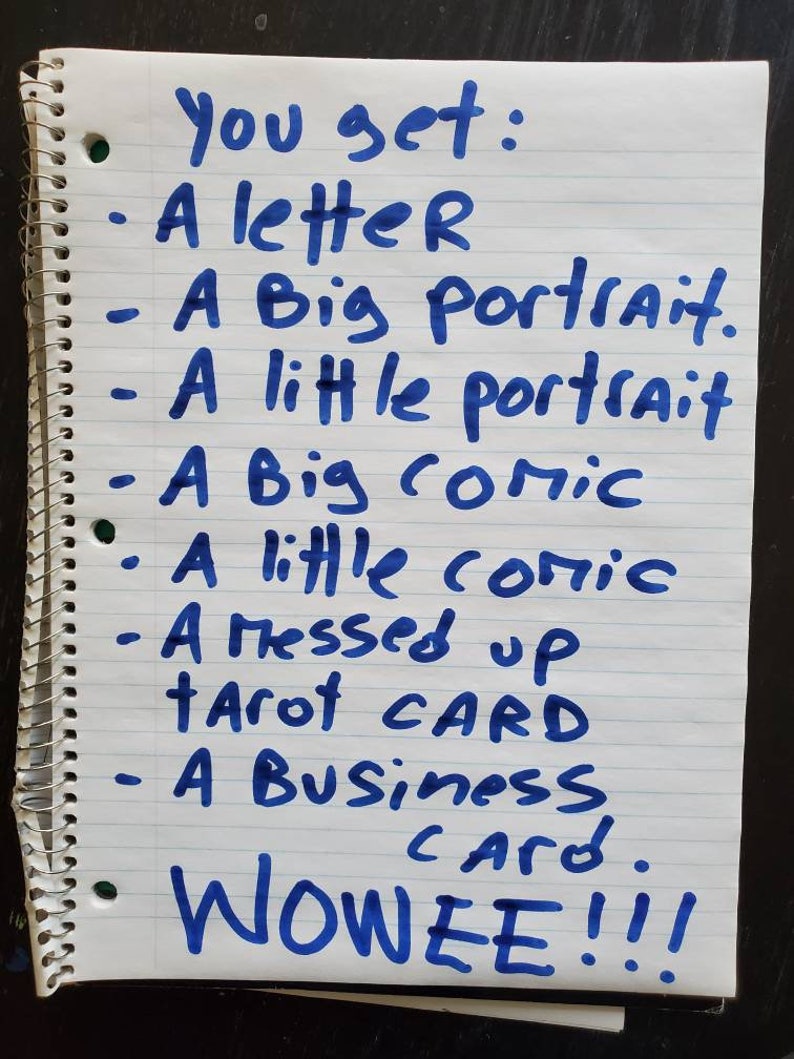 you get:
- A letteR
- A Big portrAit.
- A little portrAit
- A Big comic
- A little comic
- A messed up
tArot CARD
- A Business
cArd.
WOWEE!!!